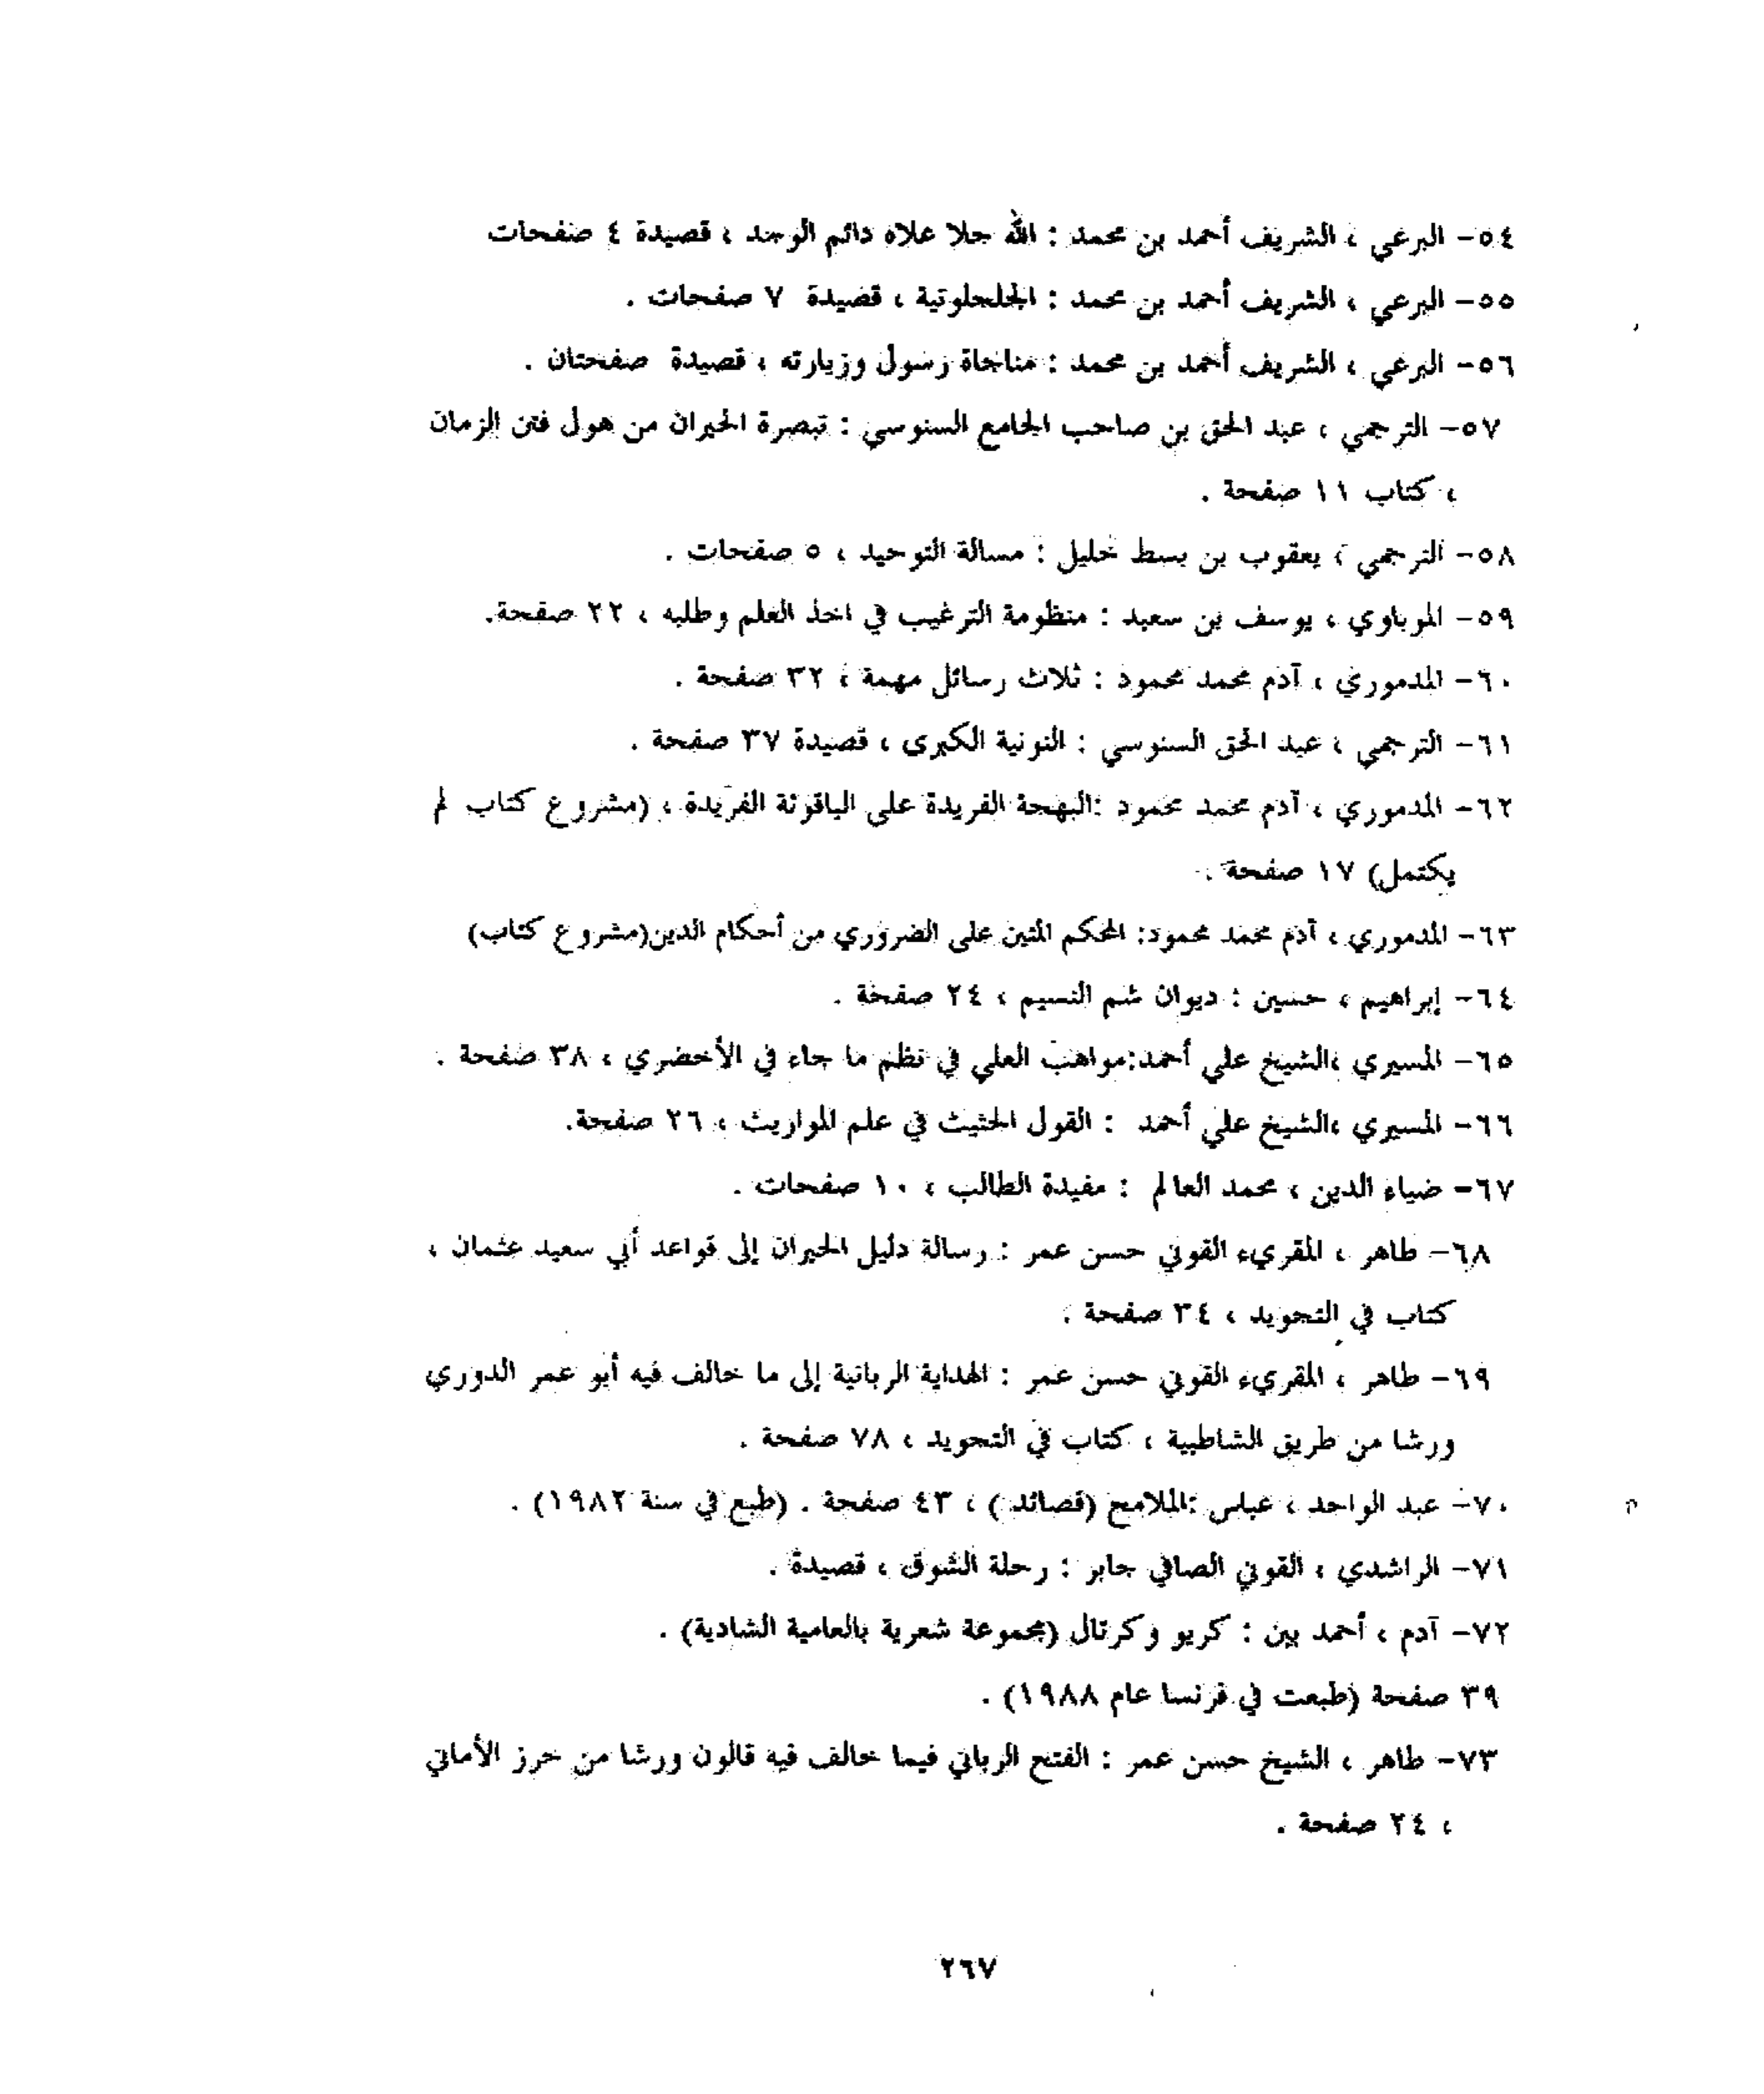 ٥٤- البرعي ، الشريف أحمد بن محمد : الله جلا علاه دائم الوجد ، قصيدة ٤ صفحات
٥٥- البرعي ، الشريف أحمد بن محمد : الجلجلوتية ، قصيدة ٧ صفحات .
٥٦- البرعي ، الشريف أحمد بن محمد : مناجاة رسول وزيارته ، قصيدة صفحتان .
٥٧- الترجمي ، عبد الحق بن صاحب الجامع السنوسي : تبصرة الحيران من هول فتن الزمان
، كتاب ١١ صفحة .
٥٨- الترجمي ، يعقوب بن بسط خليل : مسالة التوحيد ، ٥ صفحات .
٥٩- الموباوي ، يوسف بن سعيد : منظومة الترغيب في اخذ العلم وطلبه ، ٢٢ صفحة.
٦٠- المدموري ، آدم محمد محمود : ثلاث رسائل مهمة ، ٣٢ صفحة .
٦١- الترجمي ، عبد الحق السنوسي : النونية الكبرى ، قصيدة ٣٧ صفحة .
٦٢- المدموري ، آدم محمد محمود :البهجة الفريدة على الياقوتة الفريدة ، (مشروع كتاب لم
يكتمل) ١٧ صفحة .
٦٣- المدموري ، آدم محمد محمود: المحكم المتين على الضروري من أحكام الدين(مشروع كتاب)
٦٤- إبراهيم ، حسين : ديوان شم النسيم ، ٢٤ صفحة .
٦٥- المسيري ،الشيخ علي أحمد:مواهب العلي في نظم ما جاء في الأخضري ، ٣٨ صفحة .
٦٦- المسيري ،الشيخ علي أحمد : القول الحثيث في علم المواريث ، ٢٦ صفحة.
٦٧- ضياء الدين ، محمد العالم : مفيدة الطالب ، ١٠ صفحات .
٦٨- طاهر ، المقريء القوني حسن عمر : رسالة دليل الحيران إلى قواعد أبي سعيد عثمان ،
كتاب في التجويد ، ٣٤ صفحة .
٦٩- طاهر ، المقريء القوني حسن عمر : الهداية الربانية إلى ما خالف فيه أبو عمر الدوري
ورشا من طريق الشاطبية ، كتاب في التجويد ، ٧٨ صفحة .
٧٠- عبد الواحد ، عباس :الملامح (قصائد ) ، ٤٣ صفحة . (طبع في سنة ١٩٨٢) .
٧١- الراشدي ، القوني الصافي جابر : رحلة الشوق ، قصيدة .
٧٢- آدم ، أحمد بين : كريو وكرتال (مجموعة شعرية بالعامية الشادية) .
٣٩ صفحة (طبعت في فرنسا عام ١٩٨٨) .
٧٣- طاهر ، الشيخ حسن عمر : الفتح الرباني فيما خالف فيه قالون ورشا من حرز الأماني
، ٢٤ صفحة .
٢٦٧